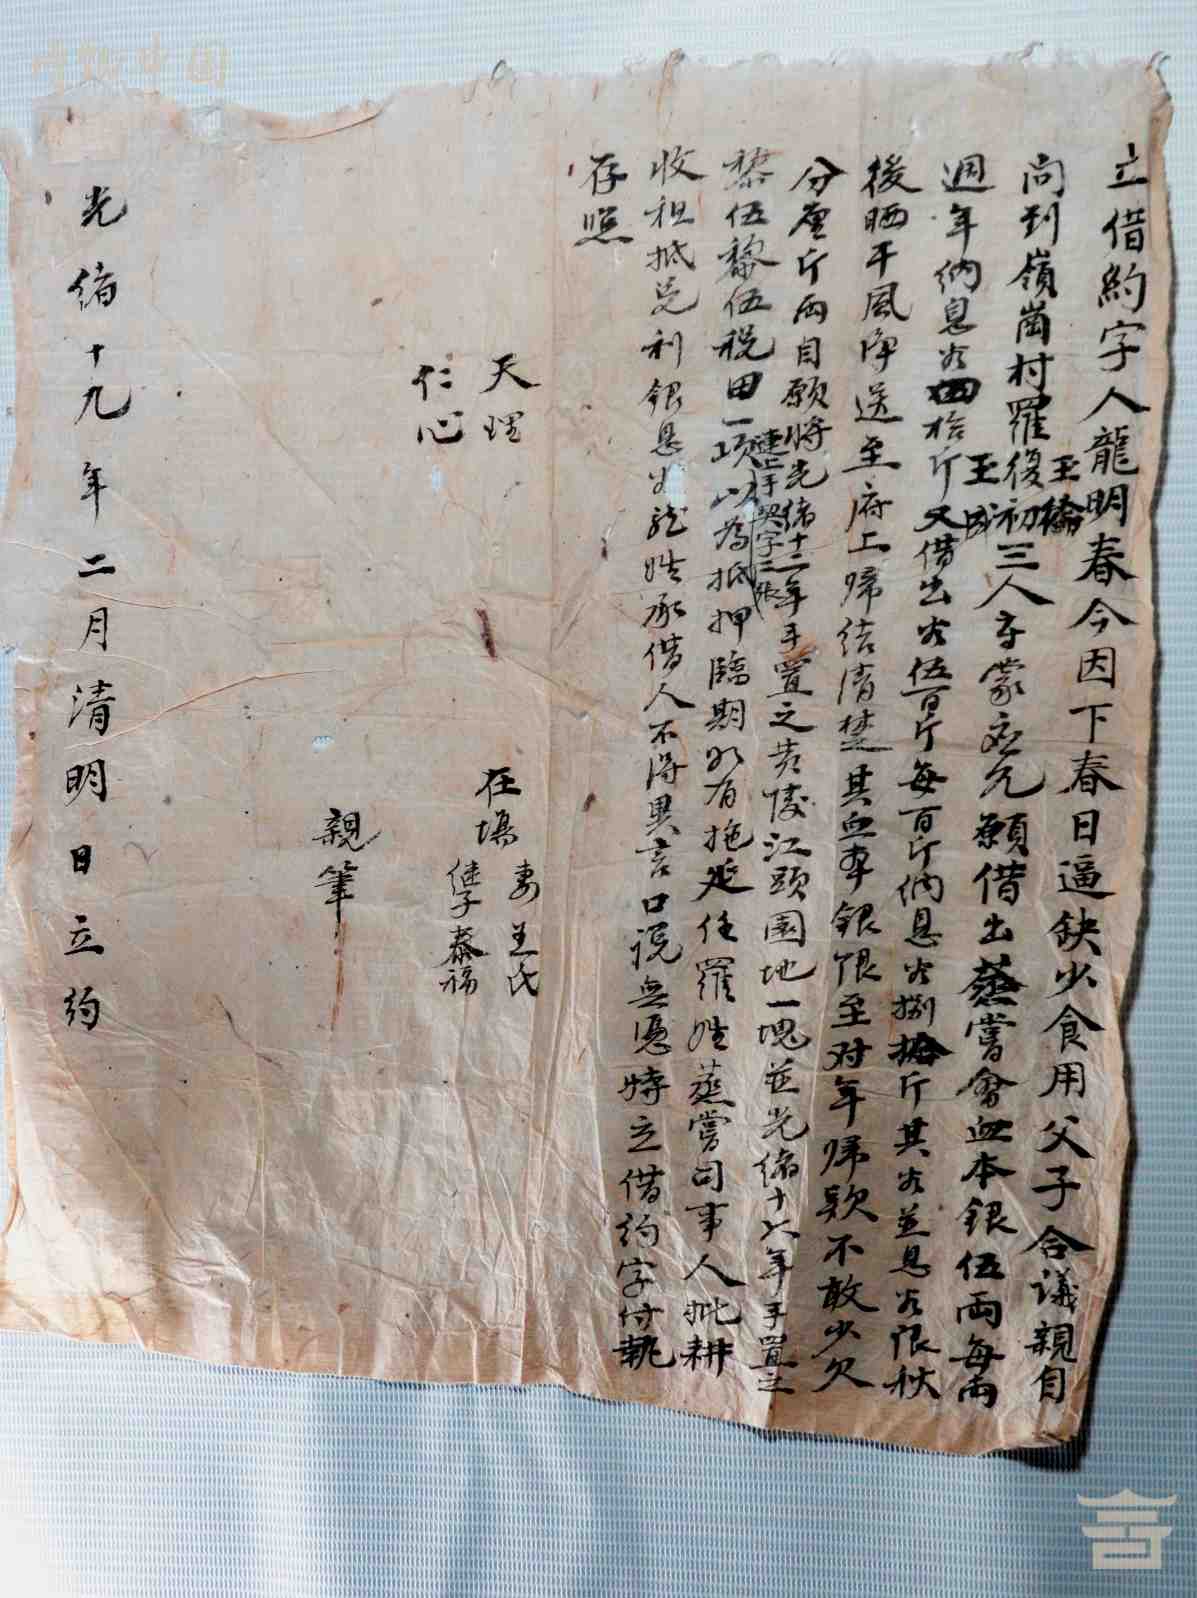 立借約字人龍明春今因下春日逼缺少食用父子合議親自
問到嶺崗村羅復初三人手蒙应允願借出蒸嘗會血本銀伍両每両
玉
玉成
週年納息谷四拾斤又借出谷伍百斤每百斤納息谷捌拾斤其谷並息谷限秋
後晒干風净送至府上歸结清楚其血本銀限至对年歸欵不敢少欠
分厘斤両自願將光緒十二年手置之黄陵江頭園地一塊並光緒十六年手置之
連上手契字二張
黎伍黎伍税田一項以為抵押臨期如有拖延任羅姓蒸嘗司事人批耕
收租抵兑利銀息谷龍姓承借人不得異言口説無憑特立借約字付執
存照
天理
仁心
在塲
妻王氏
継子泰福
親筆
光緒十九年二月清明日立约